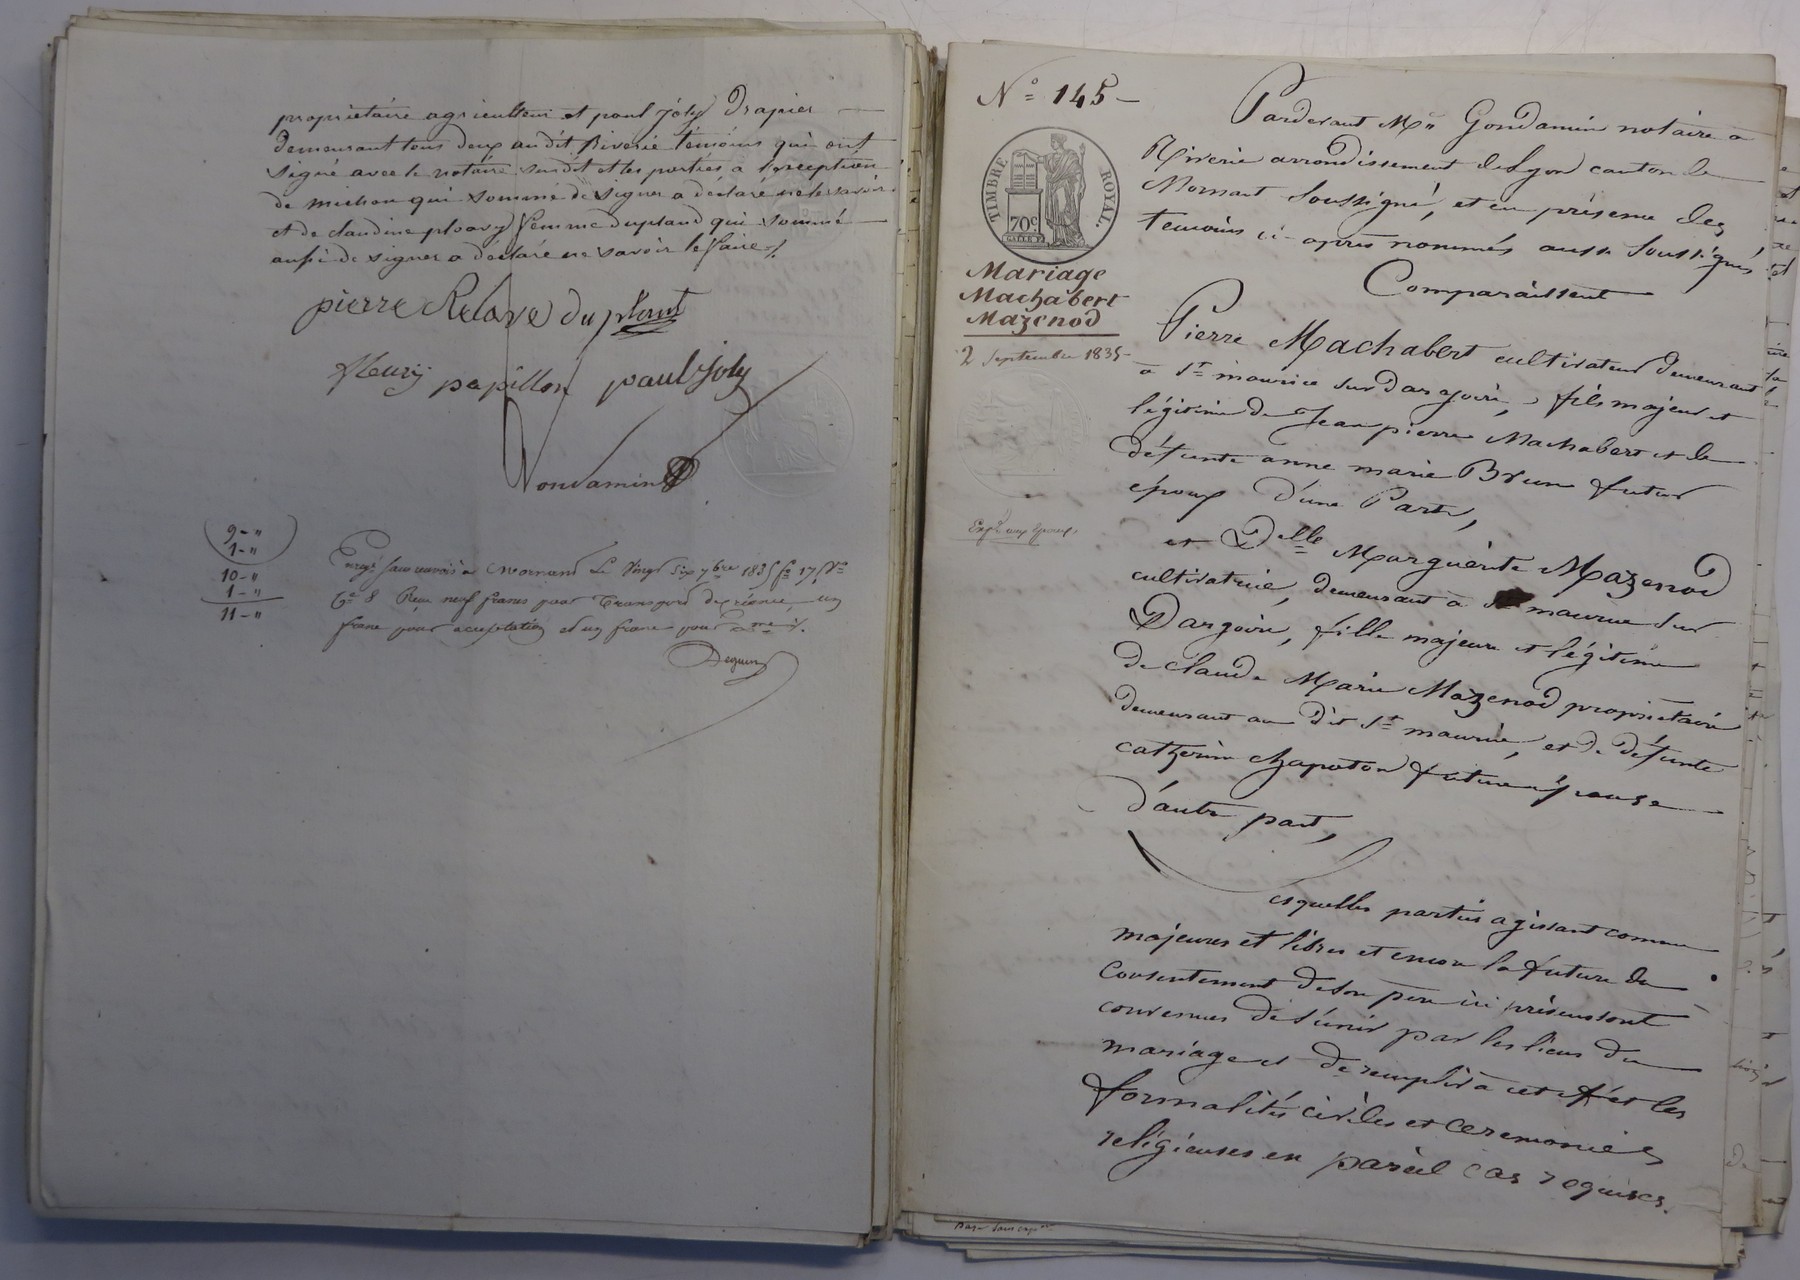 propriétaire agriculteur et paul joly Drapier
demeurant tous deux au dit Riverie témoins qui ont
signé avec le notaire susdit et les parties a l'exception
de michon qui sommé de signer a déclaré ne le savoir
et de claudine ploavy femme dupland qui sommé
aussi de signer a déclaré ne savoir le faire ./.
pierre Relave duplant
fleury papillon paul joly
Gondamin
9-"
1-"
10-"
1-"
11-"
Enregé sans renvois à Mornand Le Vingt Six 7bre 1835 fo 17 Vo
Ce 8 Reçu neuf francs pour Transport de créance, un
franc pour acceptation et un franc pour ./.
Nº 145-
TIMBRE ROYAL.
70c
Mariage
Machabert
Mazenod
2 Septembre 1835-
Expon aux Epoux
Pardevant Me Gondamin notaire a
Riverie arrondissement de Lyon canton de
Mornant Soussigné, et en présence des
temoins ci-après nommés aussi Soussignés
Comparaissent
Pierre Machabert cultivateur demeurant
a St maurice sur Dargoire, fils majeur et
légitime de Jean pierre Machabert et de
défunte anne marie Brun futur
époux d'une Part,
et Delle Marguerite Mazenod
cultivatrice, demeurant à St maurice sur
Dargoire, fille majeure et légitime
de claude Marie Mazenod propriétaire
demeurant au dit St maurice, et de défunte
catherine chapoton future épouse
d'autre part,
Lesquelles parties agissant comme
majeures et libres et encore la future du
consentement de son père ici présent sont
convenues de s'unir par les liens du
mariage et de remplir a cet effet les
formalités civiles et ceremonies
religieuses en pareil cas requises.